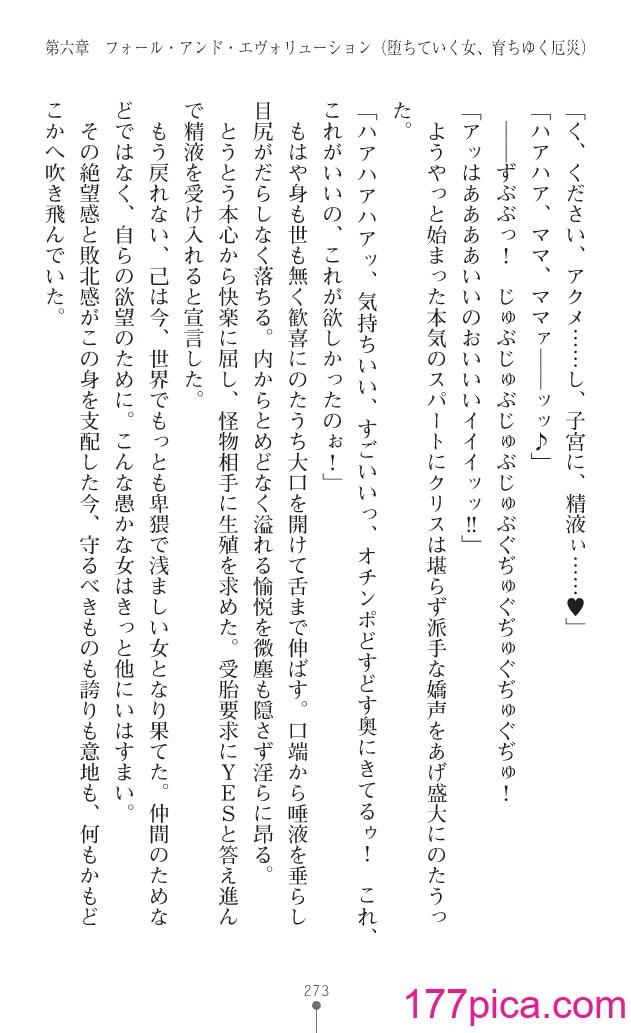 第六章　フォール・アンド・エヴォリューション（堕ちていく女、育ちゆく厄災）
「く、ください、アクメ……し、子宮に、精液ぃ……♥」
「ハアハア、ママ、ママァ――ッッ♪」
――ずぶぶっ！　じゅぶじゅぶじゅぶじゅぶぐぢゅぐぢゅぐぢゅぐぢゅ！
「アッはああああいいのおいいいイイイッッ!!」
ようやっと始まった本気のスパートにクリスは堪らず派手な嬌声をあげ盛大にのたうっ
た。
「ハアハアハアッ、気持ちいい、すごいいっ、オチンポどすどす奥にきてるゥ！　これ、
これがいいの、これが欲しかったのぉ！」
もはや身も世も無く歓喜にのたうち大口を開けて舌まで伸ばす。口端から唾液を垂らし
目尻がだらしなく落ちる。内からとめどなく溢れる愉悦を微塵も隠さず淫らに昂る。
とうとう本心から快楽に屈し、怪物相手に生殖を求めた。受胎要求にＹＥＳと答え進ん
で精液を受け入れると宣言した。
もう戻れない、己は今、世界でもっとも卑猥で浅ましい女となり果てた。仲間のためな
どではなく、自らの欲望のために。こんな愚かな女はきっと他にいはすまい。
その絶望感と敗北感がこの身を支配した今、守るべきものも誇りも意地も、何もかもど
こかへ吹き飛んでいた。
273
177pica.com